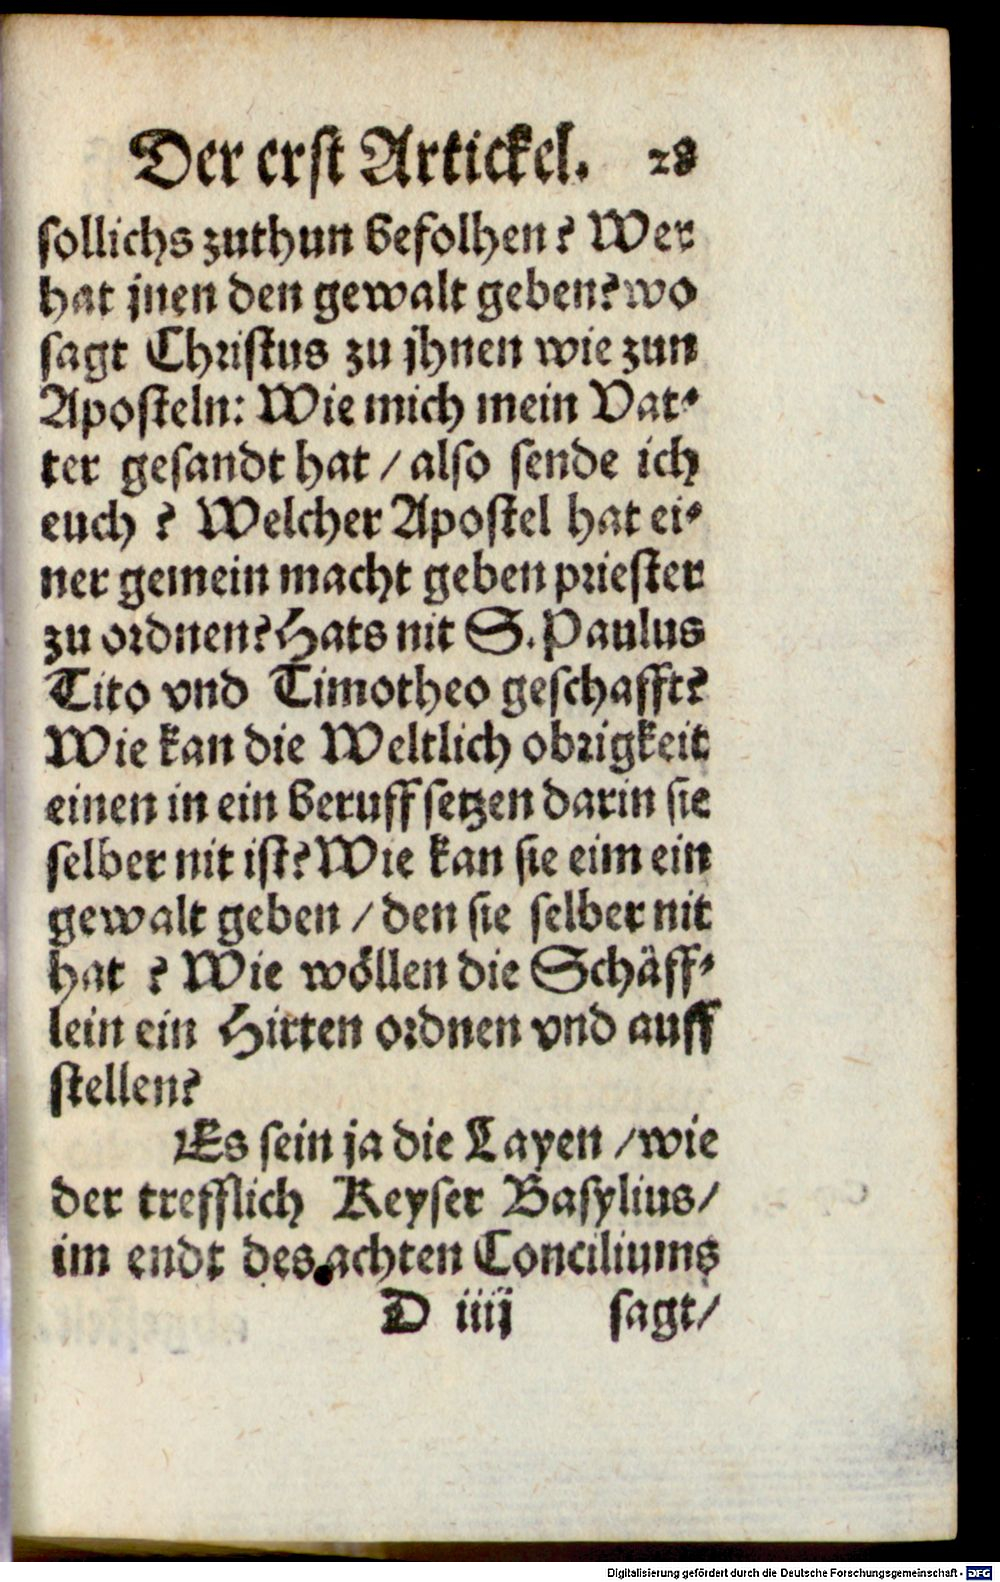 Der erst Artickel. 28
sollichs zuthun befolhen? Wer
hat jnen den gewalt geben? wo
sagt Christus zu jhnen wie zun
Aposteln: Wie mich mein Vat⸗
ter gesandt hat / also sende ich
euch ? Welcher Apostel hat ei⸗
ner gemein macht geben priester
zu ordnen? Hats nit S. Paulus
Tito vnd Timotheo geschafft?
Wie kan die Weltlich obrigkeit
einen in ein beruff setzen darin sie
selber nit ist? Wie kan sie eim ein
gewalt geben / den sie selber nit
hat ? Wie wöllen die Schäff⸗
lein ein Hirten ordnen vnd auff
stellen?
Es sein ja die Layen / wie
der trefflich Keyser Basylius /
im endt des achten Conciliums
D iiij sagt /
Digitalisierung gefördert durch die Deutsche Forschungsgemeinschaft - DFG